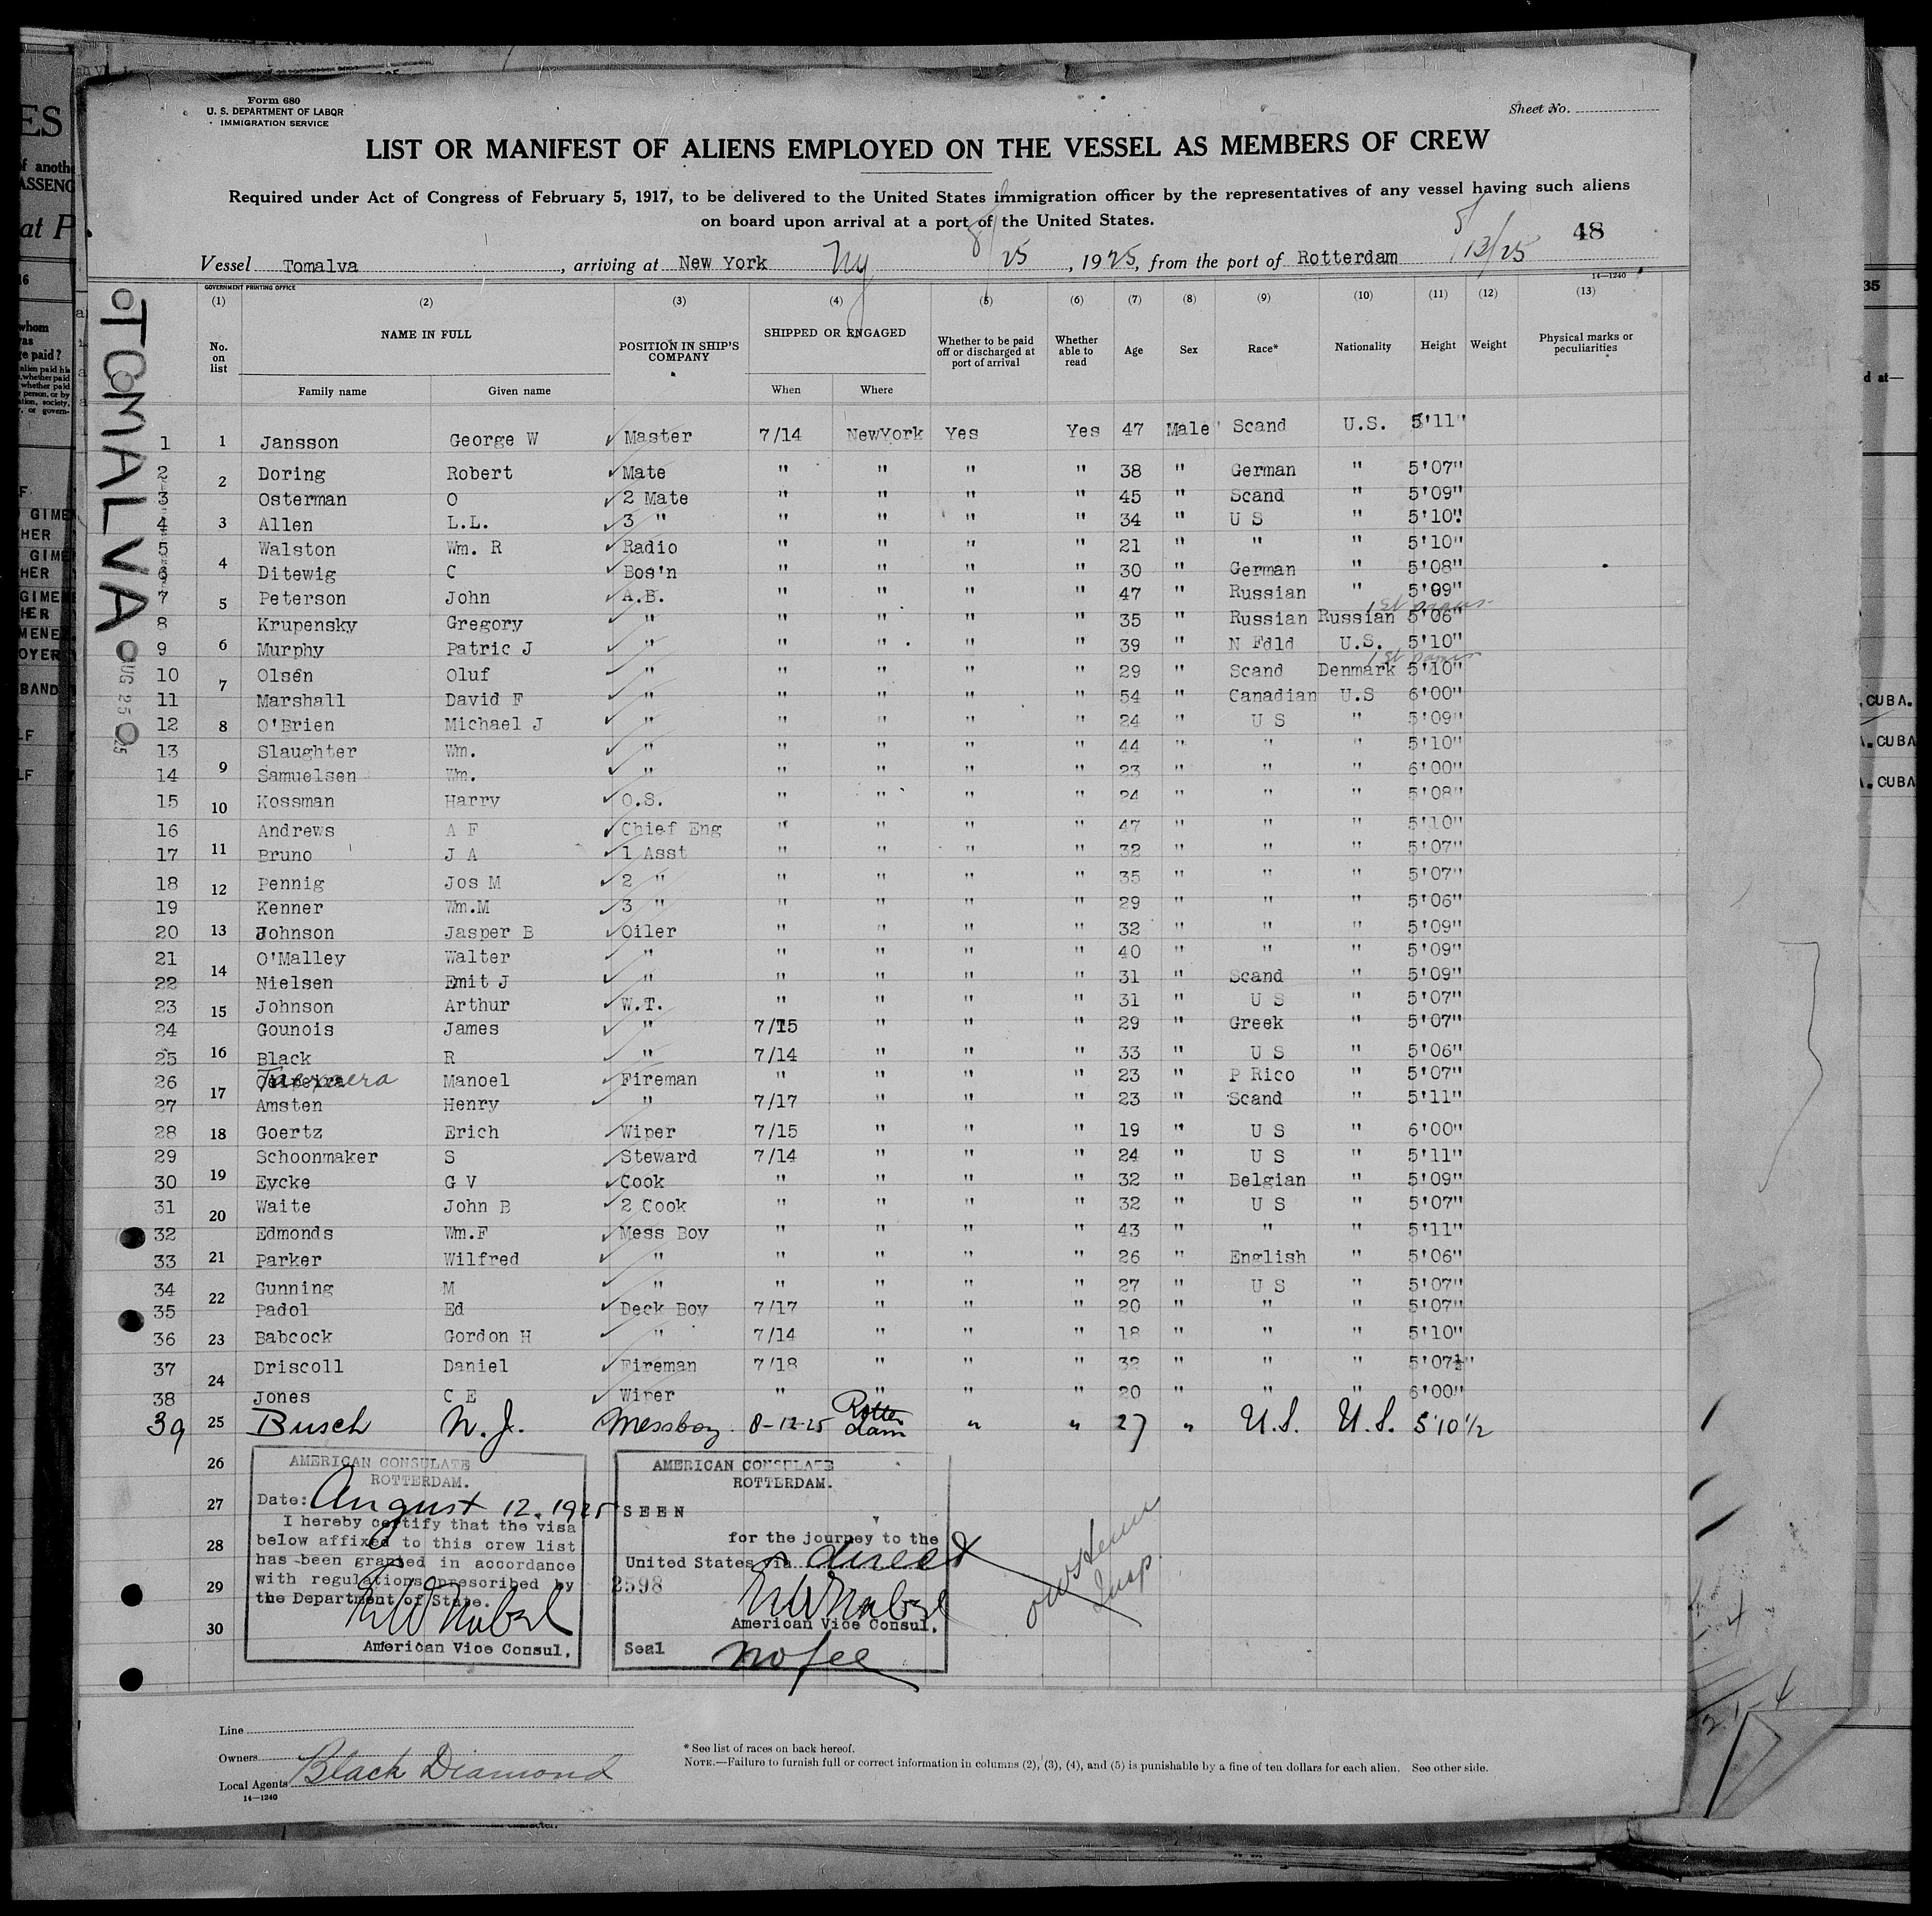 Form 680
U. S. DEPARTMENT OF LABOR
IMMIGRATION SERVICE
Sheet No.
LIST OR MANIFEST OF ALIENS EMPLOYED ON THE VESSEL AS MEMBERS OF CREW
Required under Act of Congress of February 5, 1917, to be delivered to the United States immigration officer by the representatives of any vessel having such aliens
on board upon arrival at a port of the United States.
48
Vessel Tomalva, arriving at New York Ny 8/25, 1925, from the port of Rotterdam 8/13/25
14—1240
GOVERNMENT PRINTING OFFICE
(1) (2) (3) (4) (5) (6) (7) (8) (9) (10) (11) (12) (13)
No. on list NAME IN FULL POSITION IN SHIP'S COMPANY SHIPPED OR ENGAGED Whether to be paid off or discharged at port of arrival Whether able to read Age Sex Race* Nationality Height Weight Physical marks or peculiarities
Family name Given name When Where
TOMALVA
AUG 25 25
1 1 Jansson George W Master 7/14 NewYork Yes Yes 47 Male Scand U.S. 5'11"
2 2 Doring Robert Mate " " " " 38 " German " 5'07"
3 Osterman O 2 Mate " " " " 45 " Scand " 5'09"
4 3 Allen L.L. 3 " " " " " 34 " U S " 5'10"
5 Walston Wm. R Radio " " " " 21 " " " 5'10"
6 4 Ditewig C Bos'n " " " " 30 " German " 5'08"
7 5 Peterson John A.B. " " " " 47 " Russian " 5'09"
1st papers
8 Krupensky Gregory " " " " " 35 " Russian Russian 5'06"
9 6 Murphy Patric J " " " " " 39 " N Fdld U.S. 5'10"
1st papers
10 Olsen Oluf " " " " " 29 " Scand Denmark 5'10"
11 7 Marshall David F " " " " " 54 " Canadian U.S 6'00"
12 8 O'Brien Michael J " " " " " 24 " U S " 5'09"
13 Slaughter Wm. " " " " " 44 " " " 5'10"
14 9 Samuelsen Wm. " " " " " 23 " " " 6'00"
15 10 Kossman Harry O.S. " " " " 24 " " " 5'08"
16 Andrews A F Chief Eng " " " " 47 " " " 5'10"
17 11 Bruno J A 1 Asst " " " " 32 " " " 5'07"
18 12 Pennig Jos M 2 " " " " " 35 " " " 5'07"
19 Kenner Wm.M 3 " " " " " 29 " " " 5'06"
20 13 Johnson Jasper B Oiler " " " " 32 " " " 5'09"
21 O'Malley Walter " " " " " 40 " " " 5'09"
22 14 Nielsen Emit J " " " " " 31 " Scand " 5'09"
23 15 Johnson Arthur W.T. " " " " 31 " U S " 5'07"
24 Gounois James " 7/15 " " " 29 " Greek " 5'07"
25 16 Black R " 7/14 " " " 33 " U S " 5'06"
26 Manoel Fireman " " " " 23 " P Rico " 5'07"
27 17 Amsten Henry " 7/17 " " " 23 " Scand " 5'11"
28 18 Goertz Erich Wiper 7/15 " " " 19 " U S " 6'00"
29 Schoonmaker S Steward 7/14 " " " 24 " U S " 5'11"
30 19 Eycke G V Cook " " " " 32 " Belgian " 5'09"
31 20 Waite John B 2 Cook " " " " 32 " U S " 5'07"
32 Edmonds Wm.F Mess Boy " " " " 43 " " " 5'11"
33 21 Parker Wilfred " " " " " 26 " English " 5'06"
34 Gunning M " " " " " 27 " U S " 5'07"
35 22 Padol Ed Deck Boy 7/17 " " " 20 " " " 5'07"
36 23 Babcock Gordon H " 7/14 " " " 18 " " " 5'10"
37 Driscoll Daniel Fireman 7/18 " " " 32 " " " 5'07½"
38 24 Jones C E Wiper " " " " 20 " " " 6'00"
39 25 Busch N. J. Messboy 8-12-25 Rotterdam " " 27 " U.S. U.S. 5'10 1/2
26
27
28
29
30
AMERICAN CONSULATE
ROTTERDAM.
Date: August 12. 1925
I hereby certify that the visa
below affixed to this crew list
has been granted in accordance
with regulations prescribed by
the Department of State.
American Vice Consul.
AMERICAN CONSULATE
ROTTERDAM.
SEEN
for the journey to the
United States via direct
2598
American Vice Consul.
Seal no fee
Insp.
Line
Owners
Local Agents Black Diamond
14—1240
* See list of races on back hereof.
NOTE.—Failure to furnish full or correct information in columns (2), (3), (4), and (5) is punishable by a fine of ten dollars for each alien. See other side.